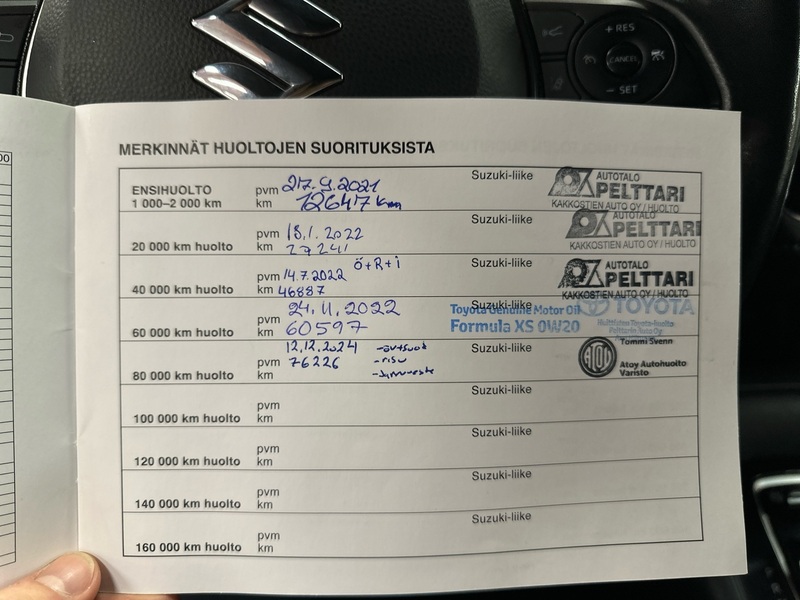 + RES
CANCEL
− SET
00
MERKINNÄT HUOLTOJEN SUORITUKSISTA
ENSIHUOLTO pvm 27.9.2021 Suzuki-liike AUTOTALO
1 000–2 000 km km 12647 km PELTTARI
KAKKOSTIEN AUTO OY / HUOLTO
pvm 18.1.2022 Suzuki-liike AUTOTALO
20 000 km huolto km 27241 PELTTARI
KAKKOSTIEN AUTO OY / HUOLTO
Ö+R+i Suzuki-liike AUTOTALO
pvm 14.7.2022 PELTTARI
40 000 km huolto km 46887 KAKKOSTIEN AUTO OY / HUOLTO
24.11.2022 Suzuki-liike
pvm 60597 Toyota Genuine Motor Oil TOYOTA
60 000 km huolto km Formula XS 0W20 Pelttarin Auto Oy
12.12.2024 Suzuki-liike Tommi Svenn
pvm 76226 -risu ATOY Atoy Autohuolto
80 000 km huolto km Varisto
pvm Suzuki-liike
100 000 km huolto km
pvm Suzuki-liike
120 000 km huolto km
pvm Suzuki-liike
140 000 km huolto km
pvm Suzuki-liike
160 000 km huolto km